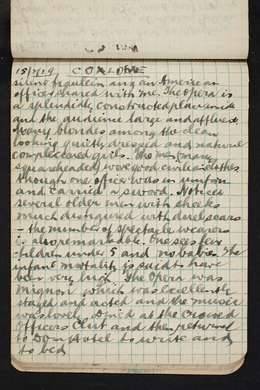 15/7/19 COLOGNE
silent fraulein and an American
officer shared with me. The Opera is
a splendidly constructed place inside
and the audience large and affluent
many blondes among the clean
looking quietly dressed and natural
complexioned girls. The men (many
squareheaded) wore good civilian clothes
though one officer was in uniform
and carried a sword. Noticed
several older men with cheeks
much disfigured with duel scars
- the number of spectacle wearers
is also remarkable. One sees few
children under 5 and no babies. The
infant mortality is said to have
been very high. The Opera was
Mignon which was excellently
staged and acted and the music
was lovely. Dined at the Crowned
Officers Club and then returned
to Dom Hotel to write and
to bed